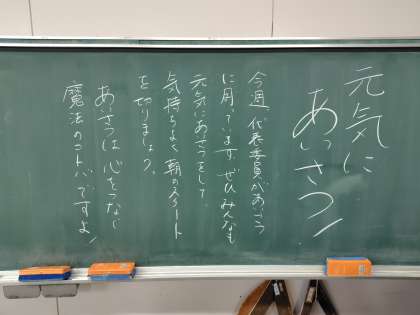 元気に
あいさつ!
今週、代表委員があいさつ
に周っています。ぜひみんなも
元気にあいさつをして、
気持ちよく朝のスタート
を切りましょう。
あいさつは心をつなぐ
魔法のコトバですよ!